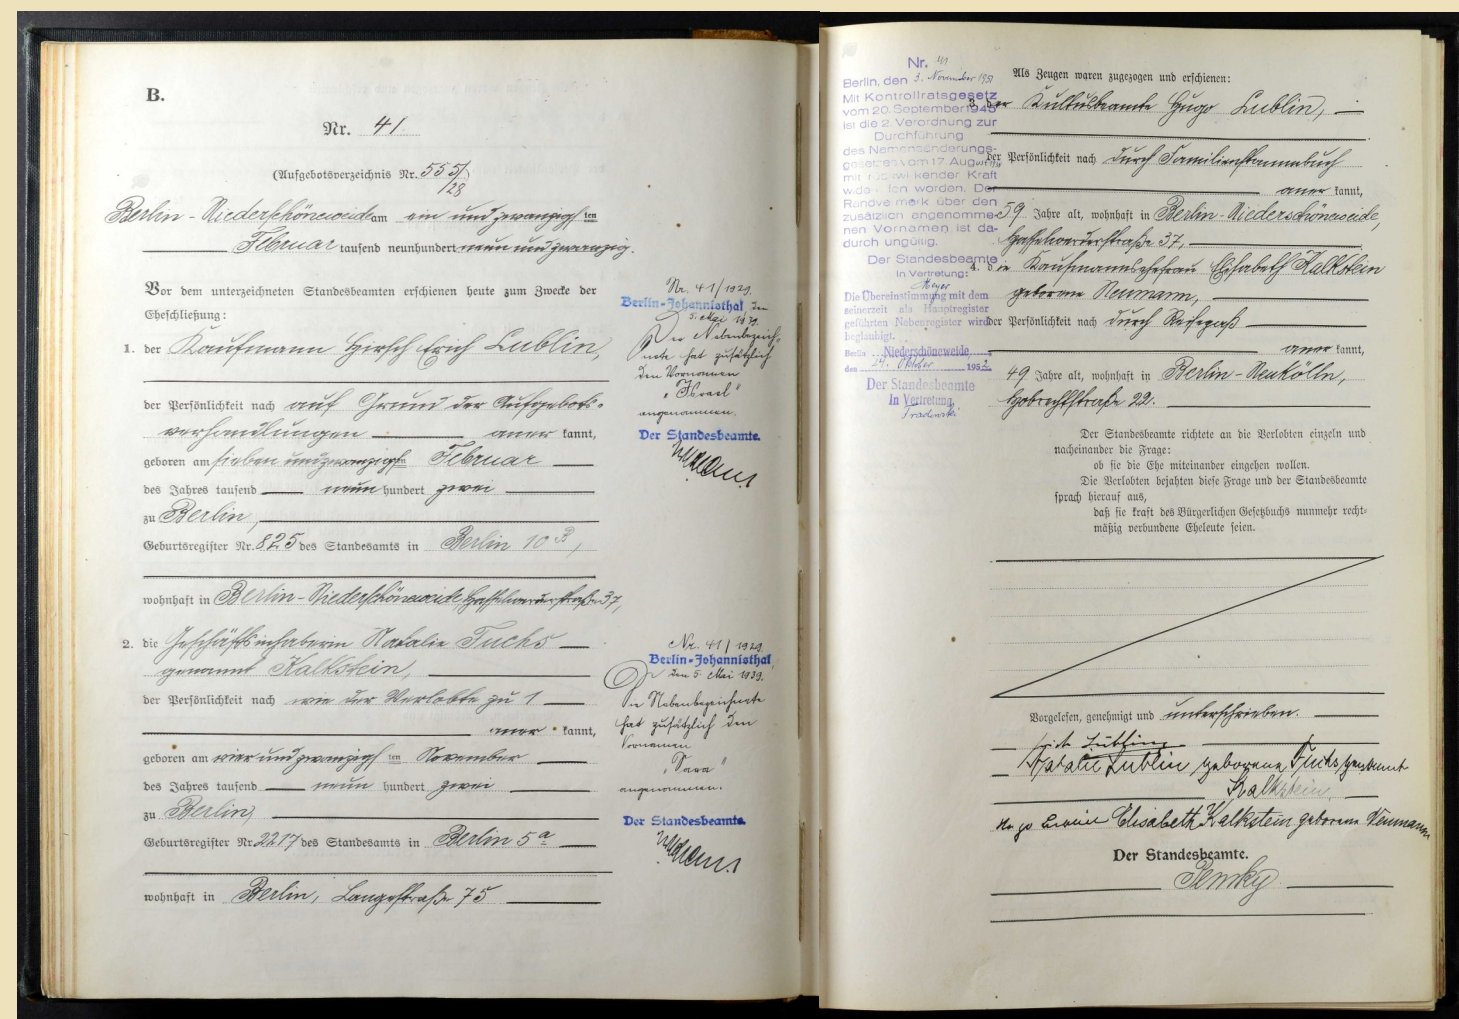 B.
Nr. 41
(Aufgebotsverzeichnis Nr. 555/28)
Berlin-Niederschöneweide am ein und zwanzigsten
Februar tausend neunhundert neun und zwanzig.
Vor dem unterzeichneten Standesbeamten erschienen heute zum Zwecke der
Eheschließung:
1. der Kaufmann Hirsch Erich Lublin,
der Persönlichkeit nach auf Grund der Aufgebots-
verhandlungen anerkannt,
geboren am sieben und zwanzigsten Februar
des Jahres tausend neunhundert zwei
zu Berlin,
Geburtsregister Nr. 825 des Standesamts in Berlin 10 B,
wohnhaft in Berlin-Niederschöneweide, Hasselwerderstraße 37,
2. die Geschäftsinhaberin Natalie Fuchs
genannt Kalkstein,
der Persönlichkeit nach wie der Verlobte zu 1
anerkannt,
geboren am vier und zwanzigsten November
des Jahres tausend neunhundert zwei
zu Berlin,
Geburtsregister Nr. 2217 des Standesamts in Berlin 5a
wohnhaft in Berlin, Langestraße 75
Nr. 41/1929.
Berlin-Johannisthal den
5. Mai 1939.
Der Nebenbezeich-
nete hat zusätzlich
den Vornamen
"Israel"
angenommen.
Der Standesbeamte.
Nr. 41/1929
Berlin-Johannisthal,
den 5. Mai 1939.
Die Nebenbezeichnete
hat zusätzlich den
Vornamen
"Sara"
angenommen.
Der Standesbeamte.
Nr. 41
Berlin, den 3. November 19
Mit Kontrollratsgesetz
vom 20. September 1945
ist die 2. Verordnung zur
Durchführung
des Namensänderungs-
gesetzes vom 17. August
mit rückwirkender Kraft
widerrufen worden. Der
Randvermerk über den
zusätzlich angenomme-
nen Vornamen ist da-
durch ungültig.
Der Standesbeamte
In Vertretung:
Meyer
Die Übereinstimmung mit dem
seinerzeit als Hauptregister
geführten Nebenregister wird
beglaubigt.
Berlin Niederschöneweide,
den 31. Oktober 1952
Der Standesbeamte
In Vertretung.
Als Zeugen waren zugezogen und erschienen:
3. der Kultusbeamte Hugo Lublin,
der Persönlichkeit nach durch Familienstammbuch
anerkannt,
59 Jahre alt, wohnhaft in Berlin-Niederschöneweide,
Hasselwerderstraße 37,
4. die Kaufmannsehefrau Elisabeth Kalkstein
geborene Neumann,
der Persönlichkeit nach durch Reisepaß
anerkannt,
49 Jahre alt, wohnhaft in Berlin-Neukölln,
Hobrechtstraße 22.
Der Standesbeamte richtete an die Verlobten einzeln und
nacheinander die Frage:
ob sie die Ehe miteinander eingehen wollen.
Die Verlobten bejahten diese Frage und der Standesbeamte
sprach hierauf aus,
daß sie kraft des Bürgerlichen Gesetzbuchs nunmehr recht-
mäßig verbundene Eheleute seien.
Vorgelesen, genehmigt und unterschrieben.
Natalie Lublin geborene Fuchs genannt
Kalkstein.
Elisabeth Kalkstein geborene Neumann
Der Standesbeamte.